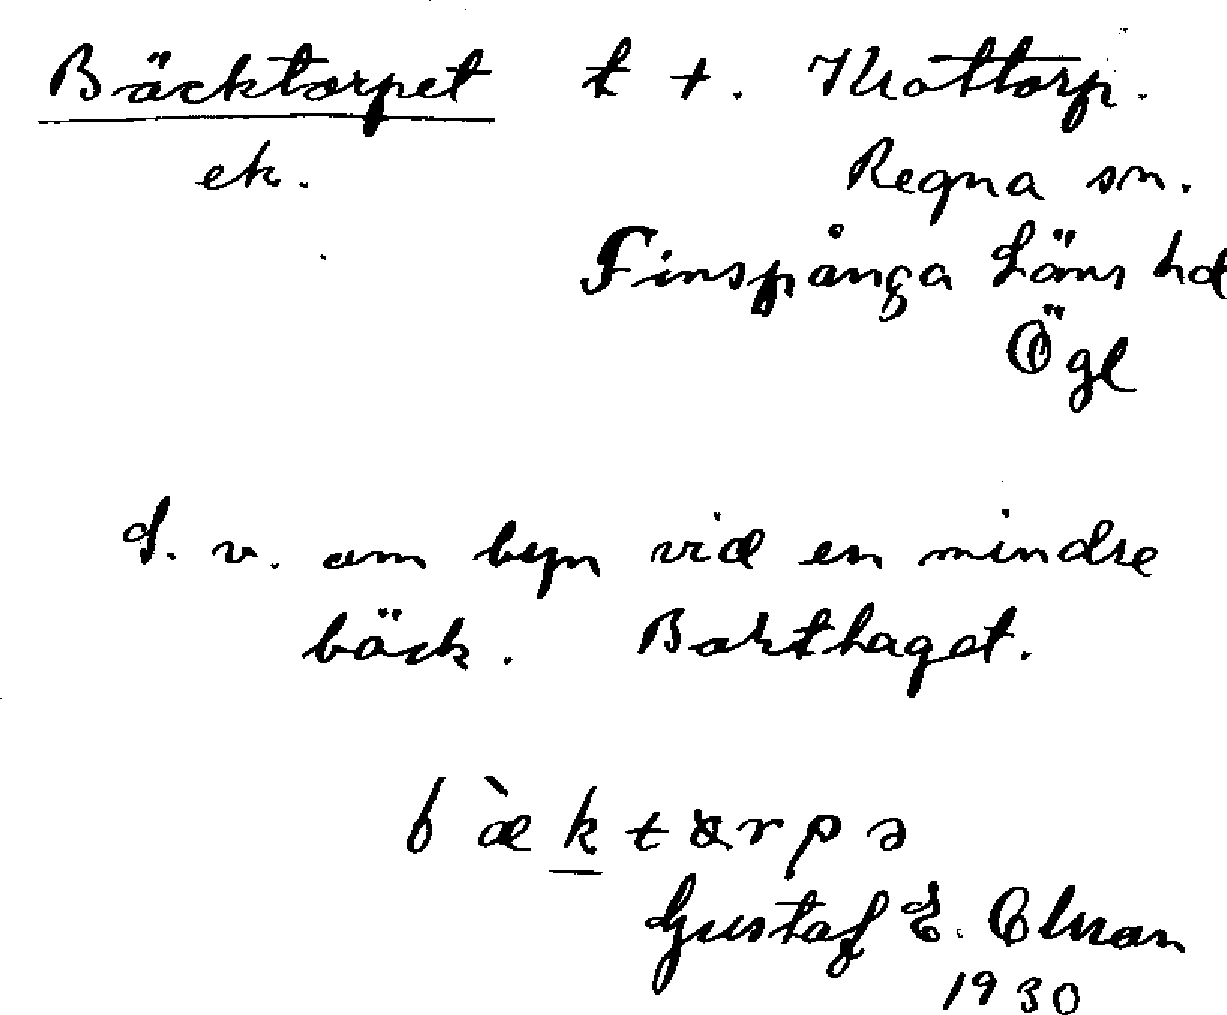 Bäcktorpet t +. Krottorp.
ek. Regna sn.
Finspånga Läns hd
Ögl
S. v. om byn vid en mindre
bäck. Borthaget.
b æ̀ k t ɤ r p ə
Gustaf E.
1930